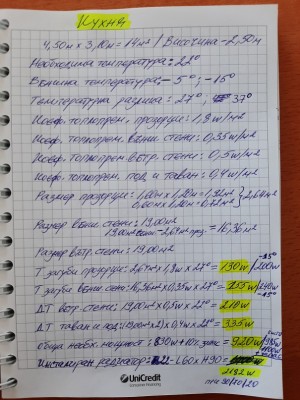 Кухня
4,50м x 3,10м = 14м² / Височина - 2,50м
Необходима температура: 22°
Външна температура: -5°; -15°
Температурна разлика: 27°; 37°
Коеф. топлопрем. прозорци: 1,8 w/м²
Коеф. топлопрем. външ. стени: 0,35 w/м²
Коеф. топлопрем. вътр. стени: 0,5 w/м²
Коеф. топлопрем. под и таван: 0,4 w/м²
Размер прозорци: 1,60м x 1,20м = 1,92м² } 2,64м²
0,60м x 1,20м = 0,72м²
Размер външ. стени: 19,00м²
19,00м² - 2,64м² = 16,36м²
Размер вътр. стени: 19,00м²
Т загуби прозорци: 2,64м² x 1,8w x 27° = 130w / 200w
-15°
Т загуби външ. стени: 16,36м² x 0,35w x 27° = 155w
-15°
ΔТ вътр. стени: 19,00м² x 0,5w x 22° = 210w
ΔТ таван и под: x 0,4w x 22° = 335w
Общо необх. мощност: 830w + 10% = 920w
Инсталиран радиатор: L60 x H90
2192w
UniCredit